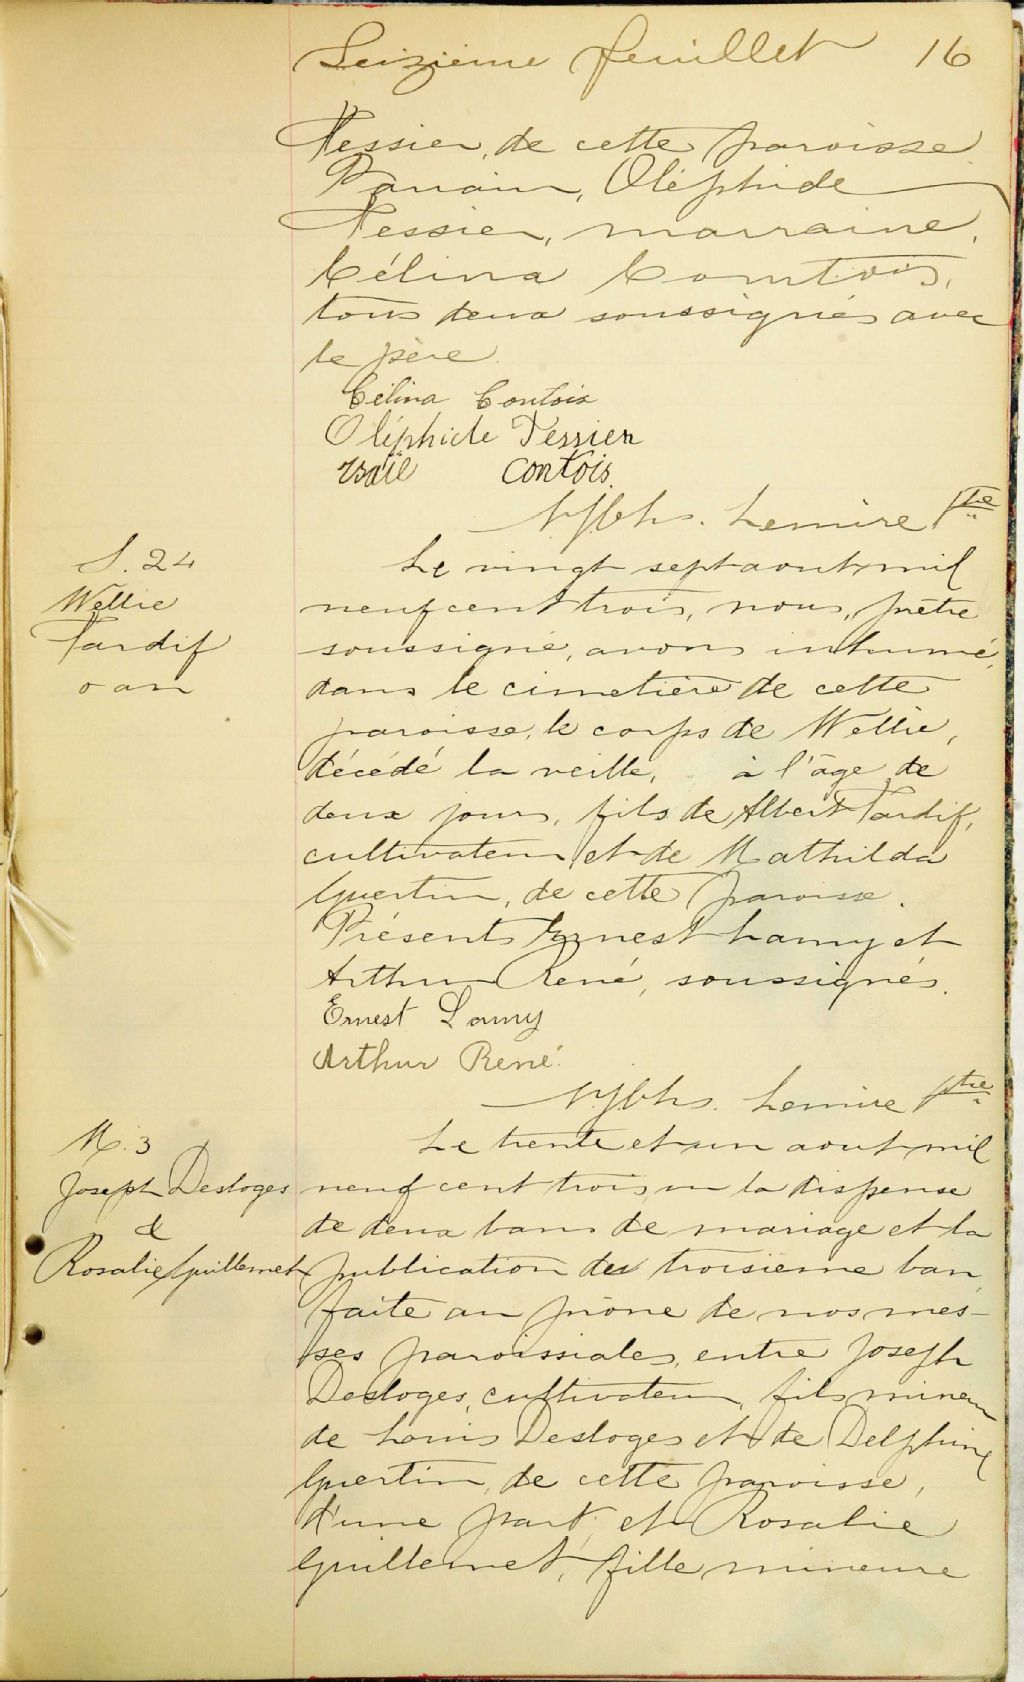 Seizième feuillet 16
Tessier, de cette paroisse.
Parrain, Oléphide
Tessier, marraine,
Célina Comtois,
tous deux soussignés avec
le père.
Célina Contois
Oléphide Tessier
Isaïe Contois.
Lemire Ptre
S. 24
Wellie
Tardif
0 an
Le vingt sept aout mil
neuf cent trois, nous, prêtre
soussigné, avons inhumé,
dans le cimetière de cette
paroisse, le corps de Wellie,
décédé la veille, à l'âge de
deux jours, fils de Albert Tardif,
cultivateur et de Mathilda
Guertin, de cette paroisse.
Présents Ernest Lamy et
Arthur René, soussignés.
Ernest Lamy
Arthur René
Lemire Ptre
M. 3
Joseph Desloges
&
Rosalie Guillemet
Le trente et un aout mil
neuf cent trois vu la dispense
de deux bans de mariage et la
publication du troisième ban
faite au prône de nos mes-
ses paroissiales, entre Joseph
Desloges, cultivateur, fils mineur
de Louis Desloges et de Delphine
Guertin, de cette paroisse,
d'une part et Rosalie
Guillemet, fille mineure